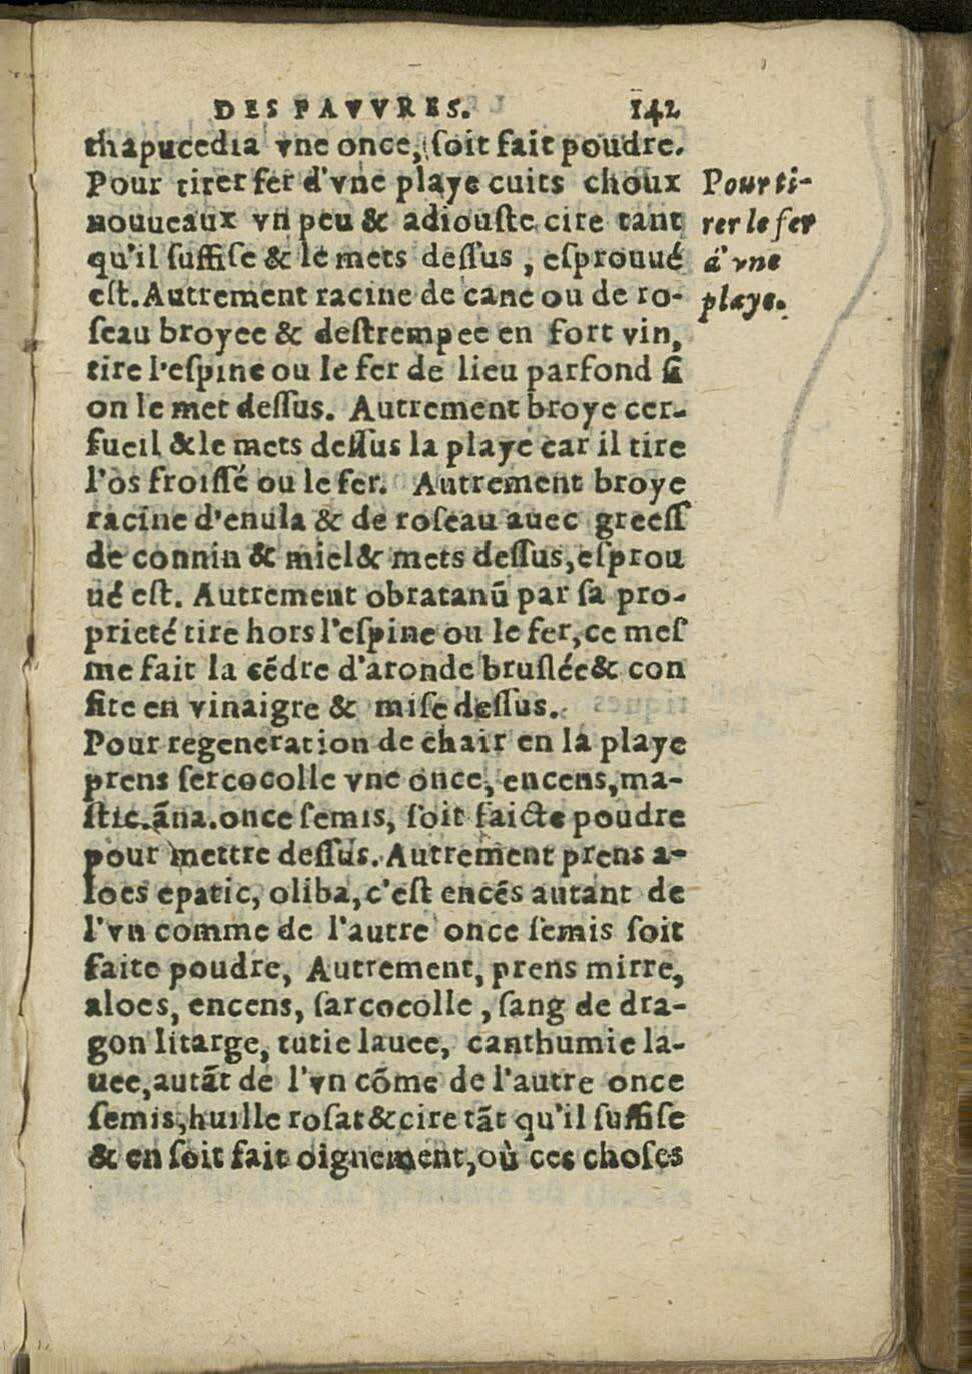 DES PAVVRES. 142
thapucedia vne once, ſoit fait poudre.
Pour tirer fer d'vne playe cuits choux
nouueaux vn peu & adiouſte cire tant
qu'il ſuffiſe & le mets deſſus, eſprouué
eſt. Autrement racine de cane ou de ro-
ſeau broyee & deſtrempee en fort vin,
tire l'eſpine ou le fer de lieu parfond ſi
on le met deſſus. Autrement broye cer-
fueil & le mets deſſus la playe car il tire
l'os froiſſé ou le fer. Autrement broye
racine d'enula & de roſeau auec greeſſ
de connin & miel & mets deſſus, eſprou
ué eſt. Autrement obratanũ par ſa pro-
prieté tire hors l'eſpine ou le fer, ce meſ
me fait la cẽdre d'aronde bruſlée & con
fite en vinaigre & miſe deſſus.
Pour regeneration de chair en la playe
prens ſercocolle vne once, encens, ma-
ſtic. ãna. once ſemis, ſoit faicte poudre
pour mettre deſſus. Autrement prens a-
loes epatic, oliba, c'eſt encẽs autant de
l'vn comme de l'autre once ſemis ſoit
faite poudre, Autrement, prens mirre,
aloes, encens, ſarcocolle, ſang de dra-
gon litarge, tutie lauee, canthumie la-
uee, autãt de l'vn cõme de l'autre once
ſemis, huille roſat & cire tãt qu'il ſuffiſe
& en ſoit fait oignement, où ces choſes
Pour ti-
rer le fer
d'vne
playe.